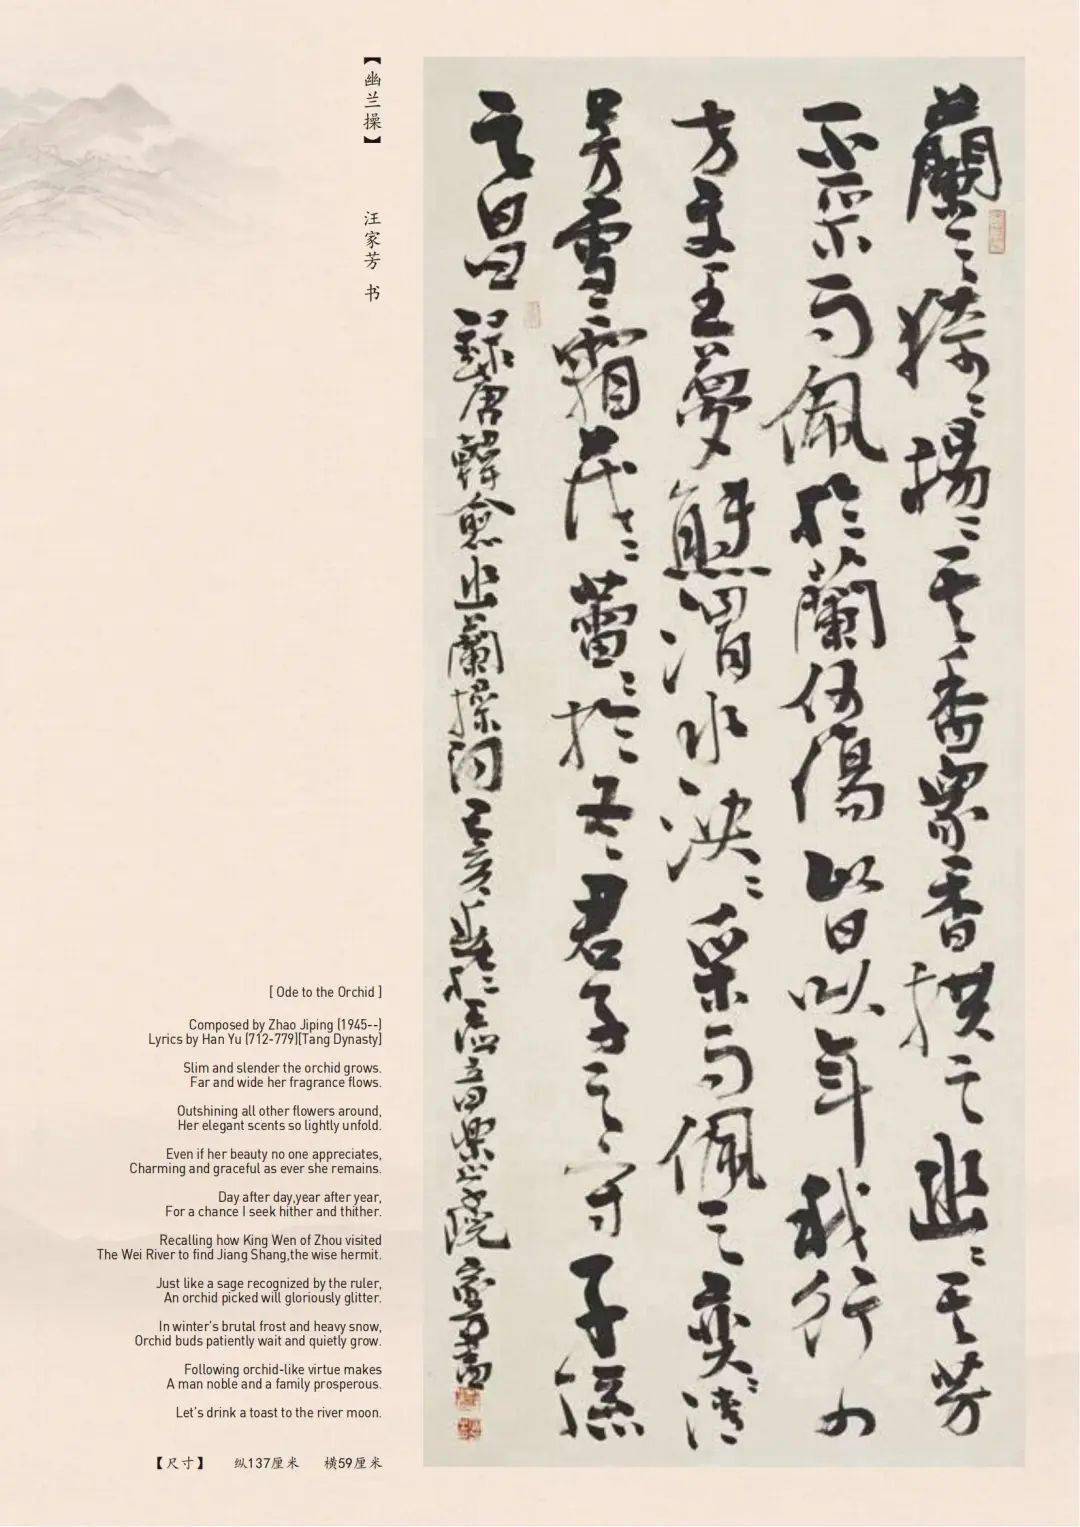 【幽兰操】
汪家芳 书
蘭之猗〻揚〻其香眾香拱之幽〻其芳
不采而佩於蘭何傷以日以年我行四
方文王夢熊渭水泱〻采而佩之奕〻清
芳雪霜茂〻蕾〻於冬君子之守子孫
之昌 錄唐韓愈幽蘭操詞 己亥 於 音樂學院 家芳書
[ Ode to the Orchid ]
Composed by Zhao Jiping (1945--)
Lyrics by Han Yu (712-779)[Tang Dynasty]
Slim and slender the orchid grows.
Far and wide her fragrance flows.
Outshining all other flowers around,
Her elegant scents so lightly unfold.
Even if her beauty no one appreciates,
Charming and graceful as ever she remains.
Day after day,year after year,
For a chance I seek hither and thither.
Recalling how King Wen of Zhou visited
The Wei River to find Jiang Shang,the wise hermit.
Just like a sage recognized by the ruler,
An orchid picked will gloriously glitter.
In winter's brutal frost and heavy snow,
Orchid buds patiently wait and quietly grow.
Following orchid-like virtue makes
A man noble and a family prosperous.
Let's drink a toast to the river moon.
【尺寸】 纵137厘米 横59厘米